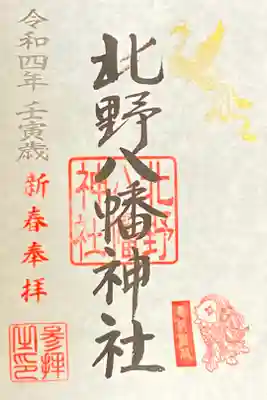 令和四年 壬寅歳
新春奉拝
北野八幡神社
北野
八幡
神社
参拝
之印